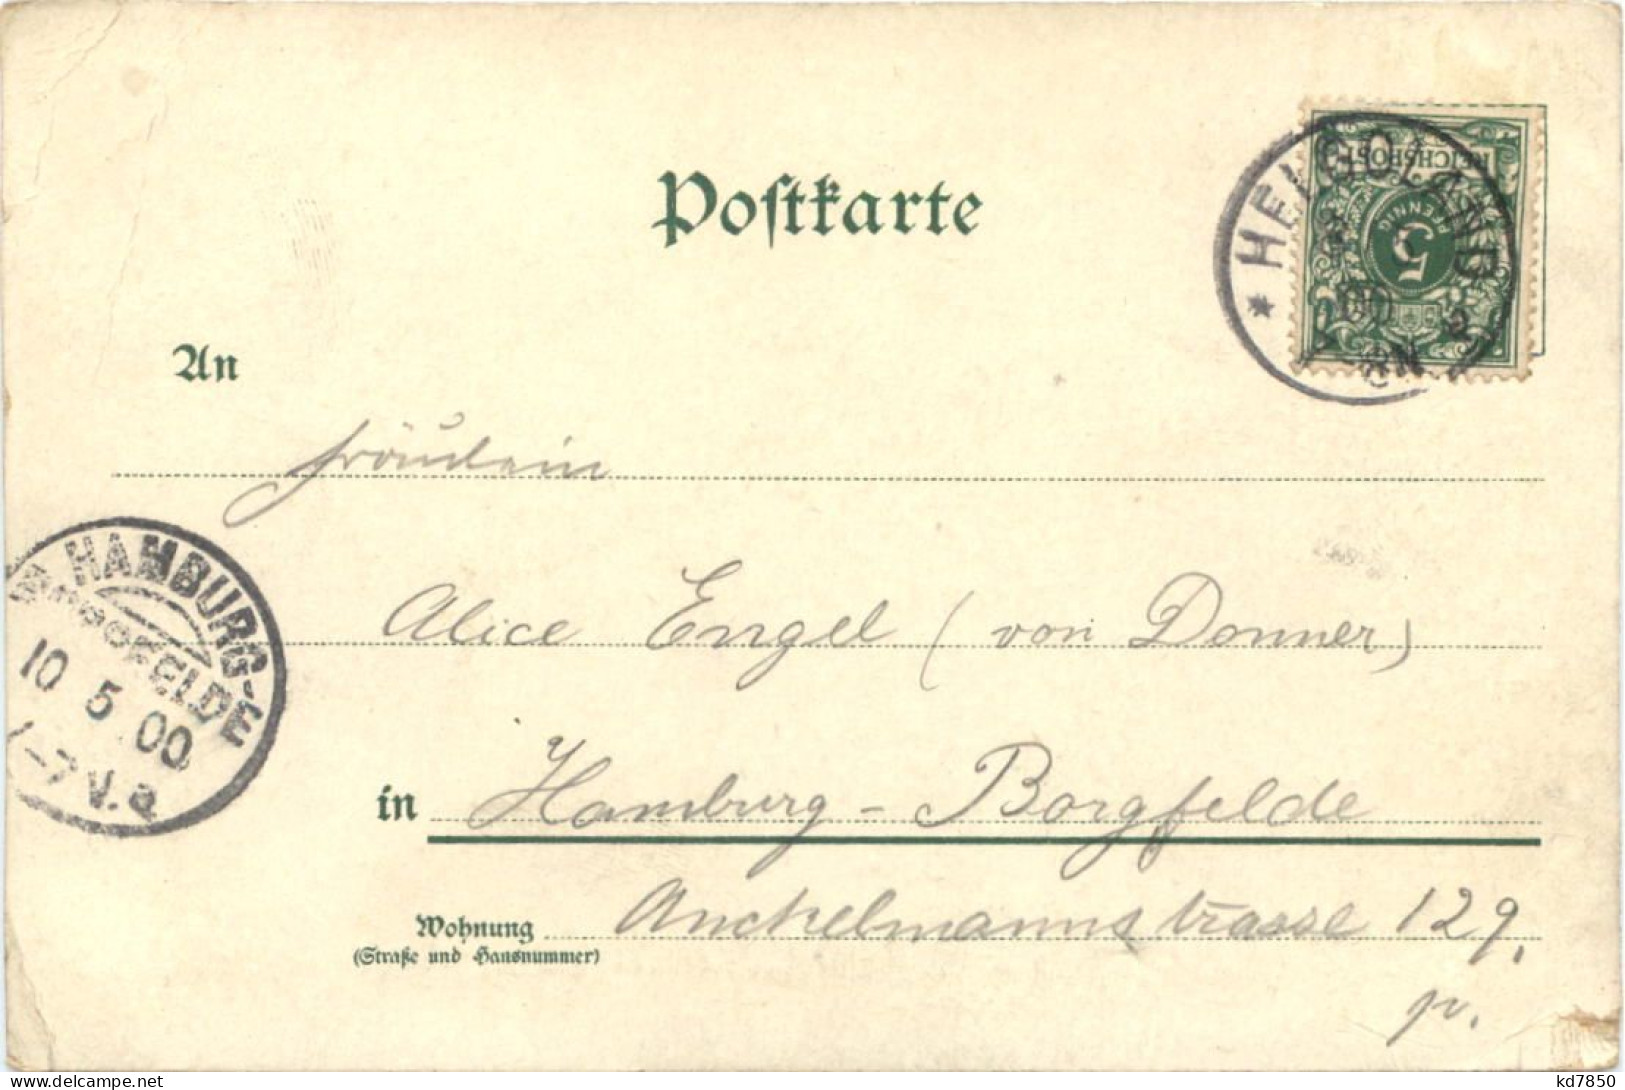 Postkarte
REICHSPOST
5
PFENNIG
* HELGOLAND
00
8-9N
An
Fräulein
Alice Engel (von Donner)
in Hamburg - Borgfelde
Wohnung Anckelmannstrasse 129.
(Straße und Hausnummer)
p.
HAMBURG-
BORGFELDE
10 5 00
-7 V.
delcampe.net
kd7850